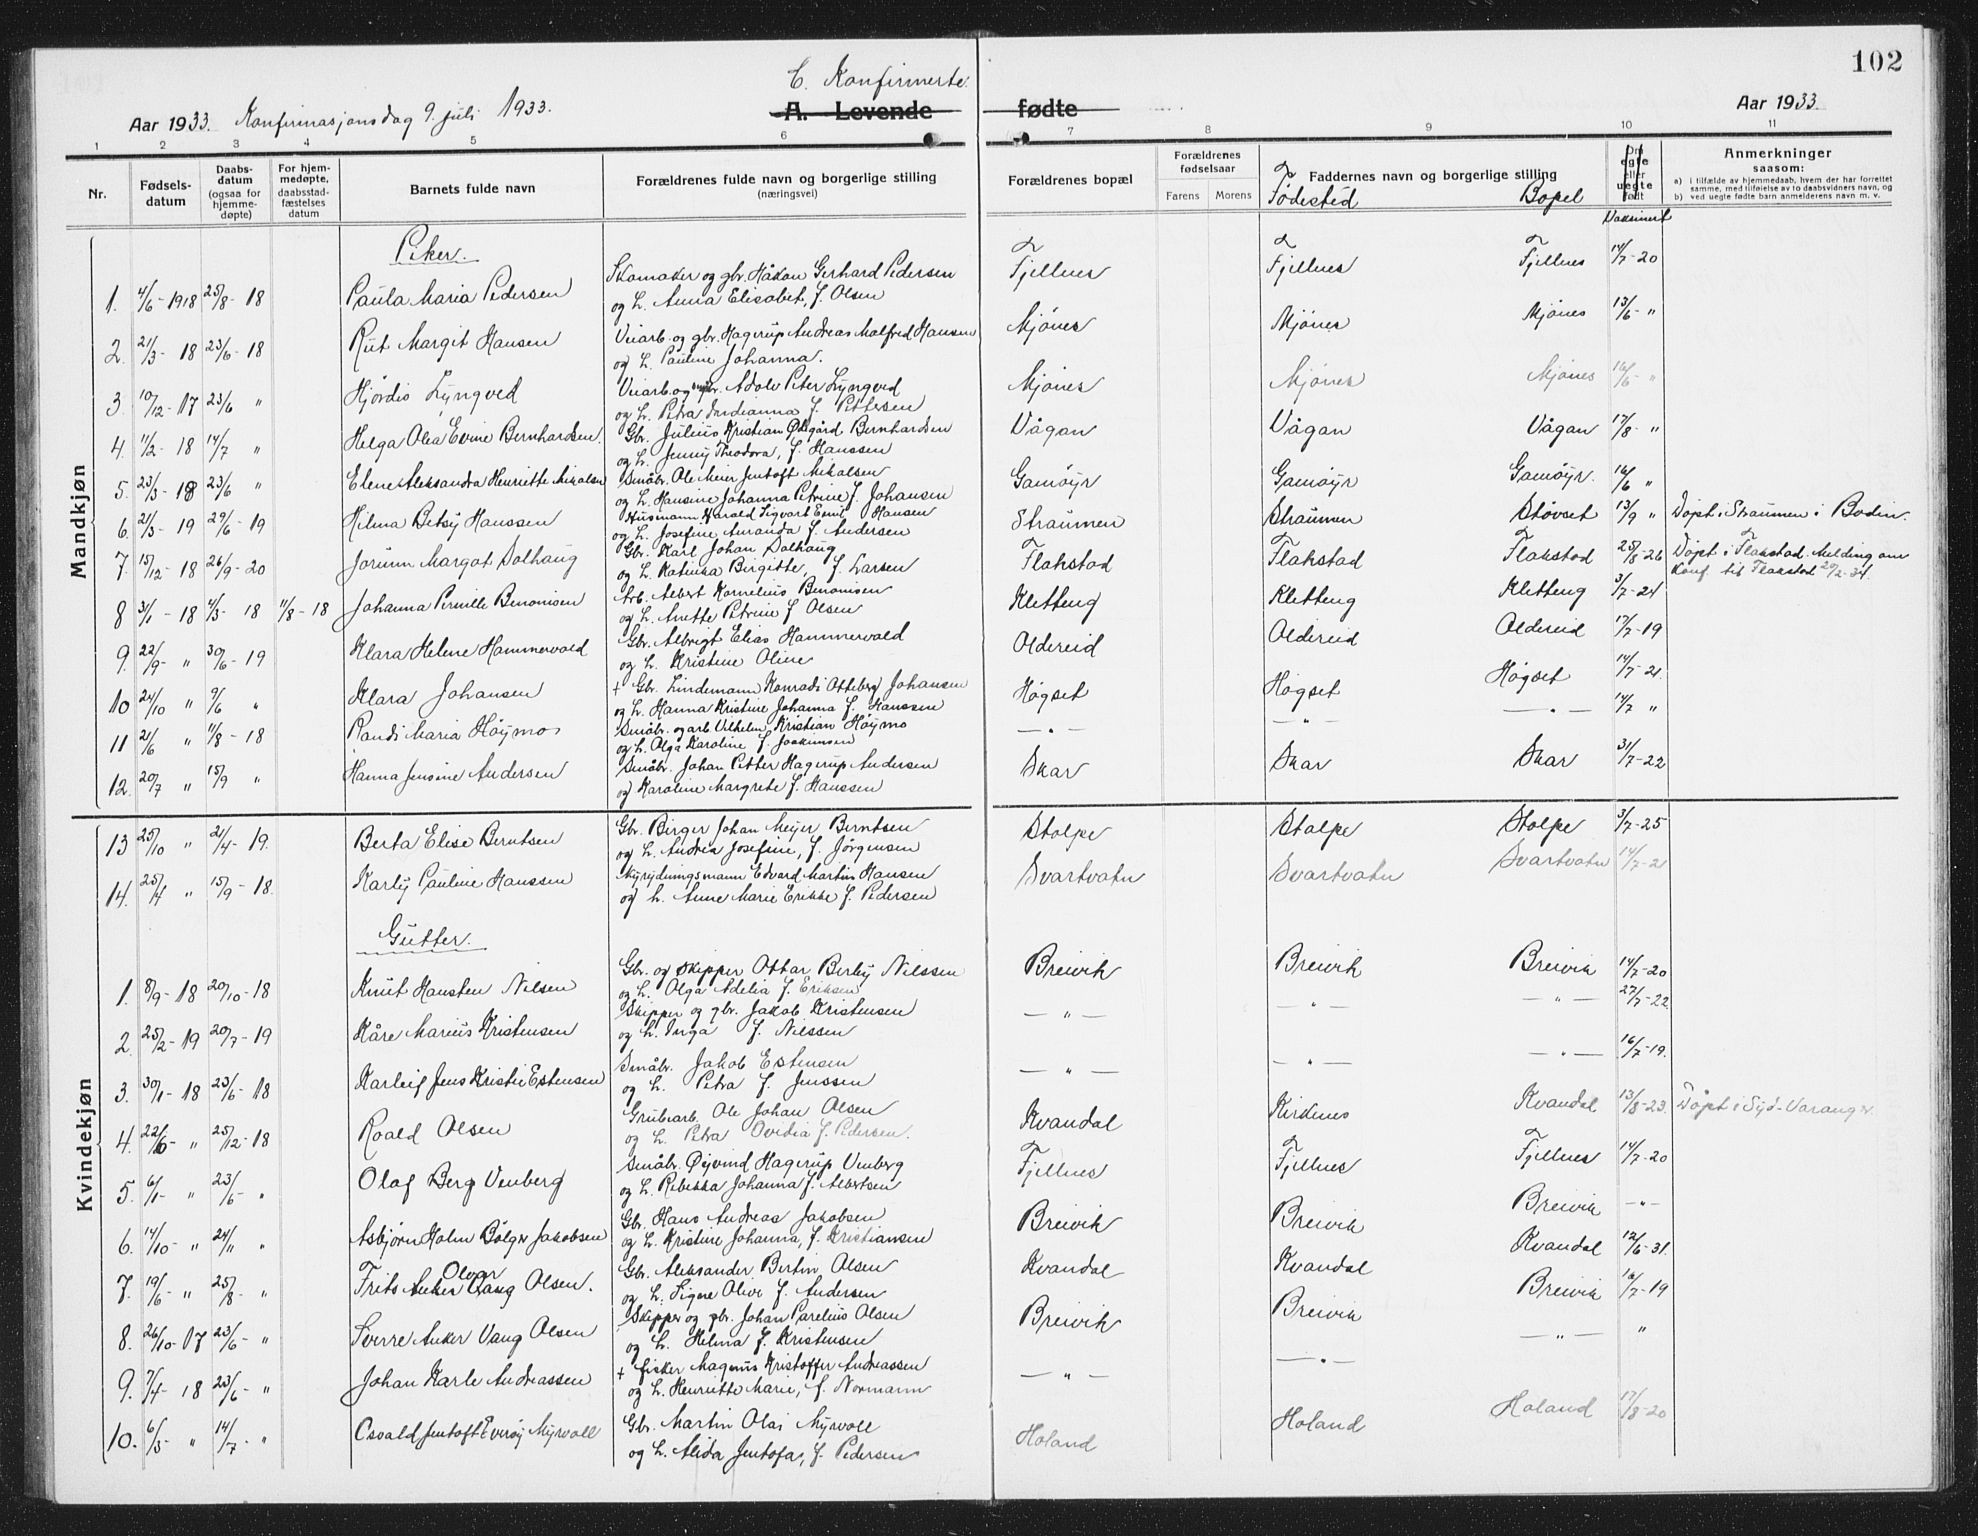 102
C. Konfirmerte.
Aar 1933. Konfirmasjonsdag 9. juli 1933. A. Levende fødte Aar 1933.
1 2 3 4 5 6 7 8 9 10 11
Nr. Fødsels-datum Daabs-datum (ogsaa for hjemme-døpte) For hjem-medøpte, daabsstad-fæstelses datum Barnets fulde navn Forældrenes fulde navn og borgerlige stilling (næringsvei) Forældrenes bopæl Forældrenes fødselsaar Farens Morens Faddernes navn og borgerlige stilling Om egte eller uegte født Anmerkninger saasom:
a) i tilfælde av hjemmedaab, hvem der har forrettet samme, med tilføielse av to daabsvidners navn, og
b) ved uegte fødte barn anmelderens navn m. v.
Fødested Bopel Vaksinert
Mandkjøn
Piker.
1. 4/6-1918 25/8-18 Paula Maria Pedersen Skomaker og gbr. Håkon Gerhard Pedersen Fjellnes Fjellnes Fjellnes 14/7-20
og h. Anna Elisabet, f. Olsen
2. 21/3-18 23/6-18 Rut Margit Hansen Veiarb. og gbr. Hagerup Andreas Malfred Hansen Mjønes Mjønes Mjønes 13/6- "
og h. Pauline Johanna.
3. 10/12-17 23/6 " Hjørdis Lyngved Veiarb. og gbr. Adolv Peter Lyngved Mjønes Mjønes Mjønes 16/6- "
og h. Petra Indianna f. Pettersen
4. 11/2-18 14/7 " Helga Olea Evine Bernhardsen. Gbr. Julius Kristian Ødegård Bernhardsen Vågan Vågan Vågan 17/8- "
og h. Jenny Theodora, f. Hanssen
5. 23/3-18 23/6 " Elene Aleksandra Henriette Mikalsen Småbr. Ole Meier Jentoft Mikalsen Gamøyr Gamøyr Gamøyr. 16/6 "
og h. Hansine Johanna Petrine f. Johansen
6. 21/3-19 29/6-19 Hilma Betsy Hanssen Husmann Harald Sigvart Emil Hansen Straumen Straumen Støvset 13/9 " Døpt i Straumen i Bodin.
og h. Josefine Amanda f. Andersen
7. 15/12-18 26/9-20 Jorunn Margot Solhaug Gbr. Karl Johan Solhaug Flakstad Flakstad Flakstad 25/8-26 Døpt i Flakstad. Melding om
og h. Katinka Birgitte, f. Larsen Konf. til Flakstad 20/2-34.
8 31/1-18 4/3-18 11/8-18 Johanna Pernille Benonisen Arb. Albert Kornelius Benonisen Kletteng Kletteng Kletteng 3/7-24
og h. Anette Petrine f. Olsen
9. 22/9- " 30/6-19 Klara Helene Hammervold Gbr. Albrigt Elias Hammervold Oldereid Oldereid Oldereid 17/7-19
og h. Kristine Oline
10 24/10 " 9/6 " Klara Johansen + Gbr. Lindemann Konradi Otteberg Johansen Høgset Høgset Høgset 14/7-21.
og h. Hanna Kristine Johanna f. Hanssen
11 21/6 " 11/8-18 Randi Maria Høymo Småbr. og arb. Vilhelm Kristian Høymo — " — — " — — " — 14/7 "
og h. Olga Karoline f. Joakimsen
12. 20/7 " 15/9 " Hanna Jensine Andersen Småbr. Johan Petter Hagerup Andersen Skar Skar Skar 31/7-22
og Karoline Margrete f. Hanssen
Kvindekjøn
13 25/10 " 21/4-19. Berta Elise Berntsen Gbr. Birger Johan Meyer Berntsen Stolpe Stolpe Stolpe 3/7-25
og h. Andrea Josefine, f. Jørgensen
14. 25/4 " 15/9-18. Karly Pauline Hanssen Nyrydningsmann Edvard Martin Hansen Svartvatn Svartvatn Svartvatn 14/7-21
og h. Anne Marie Erikke f. Pedersen
Gutter.
1. 8/9-18 20/10-18 Knut Hansten Nilsen Gbr. og skipper Ottar Berby Nilssen Breivik Breivik Breivik 14/7-20
og h. Olga Adelia f. Eriksen
2. 25/2-19 20/7-19 Kåre Marius Kristensen Skipper og gbr. Jakob Kristensen — " — — " — — " — 27/7-22.
og h. Inga f. Nilssen
3. 30/1-18 23/6-18 Karleif Jens Kristie Estensen Småbr. Jakob Estensen — " — — " — — " — 16/7-19.
og h. Petra f. Jenssen
4. 22/6- " 25/12-18 Roald Olsen Grubearb. Ole Johan Olsen Kvandal Kirkenes Kvandal 13/8-23. Døpt i Syd-Varanger.
og h. Petra Ovidia f. Pedersen.
5. 6/1- " 23/6- " Olaf Berg Venberg Småbr. Øyvind Hagerup Venberg Fjellnes Fjellnes Fjellnes 14/7-20
og h. Rebekka Johanna f. Albertsen
6. 14/10- " 24/11 " Asbjørn Holm Bølger Jakobsen Gbr. Hans Andreas Jakobsen Breivik Breivik Breivik — " —
og h. Kristine Johanna, f. Kristiansen
7. 19/6- " 25/8- " Frits Anker Olvar Olsen. Gbr. Aleksander Bertin Olsen Kvandal Kvandal Kvandal 12/6-31.
og h. Signe Olive f. Andersen
8. 26/10-17 23/6- " Sverre Anker Vang Olsen Skipper og gbr. Johan Parelius Olsen Breivik Breivik Breivik 16/7-19
og h. Helma f. Kristensen
9. 7/4-18 23/6- " Johan Karle Andreassen + fisker Magnus Kristoffer Andreassen — " — — " — — " — "
og h. Henriette Marie, f. Normann
10. 6/3- " 14/7- " Osvald Jentoft Everøy Myrvoll Gbr. Martin Olai Myrvoll Holand Holand Holand 17/8-20
og h. Alida Jentofa, f. Pedersen